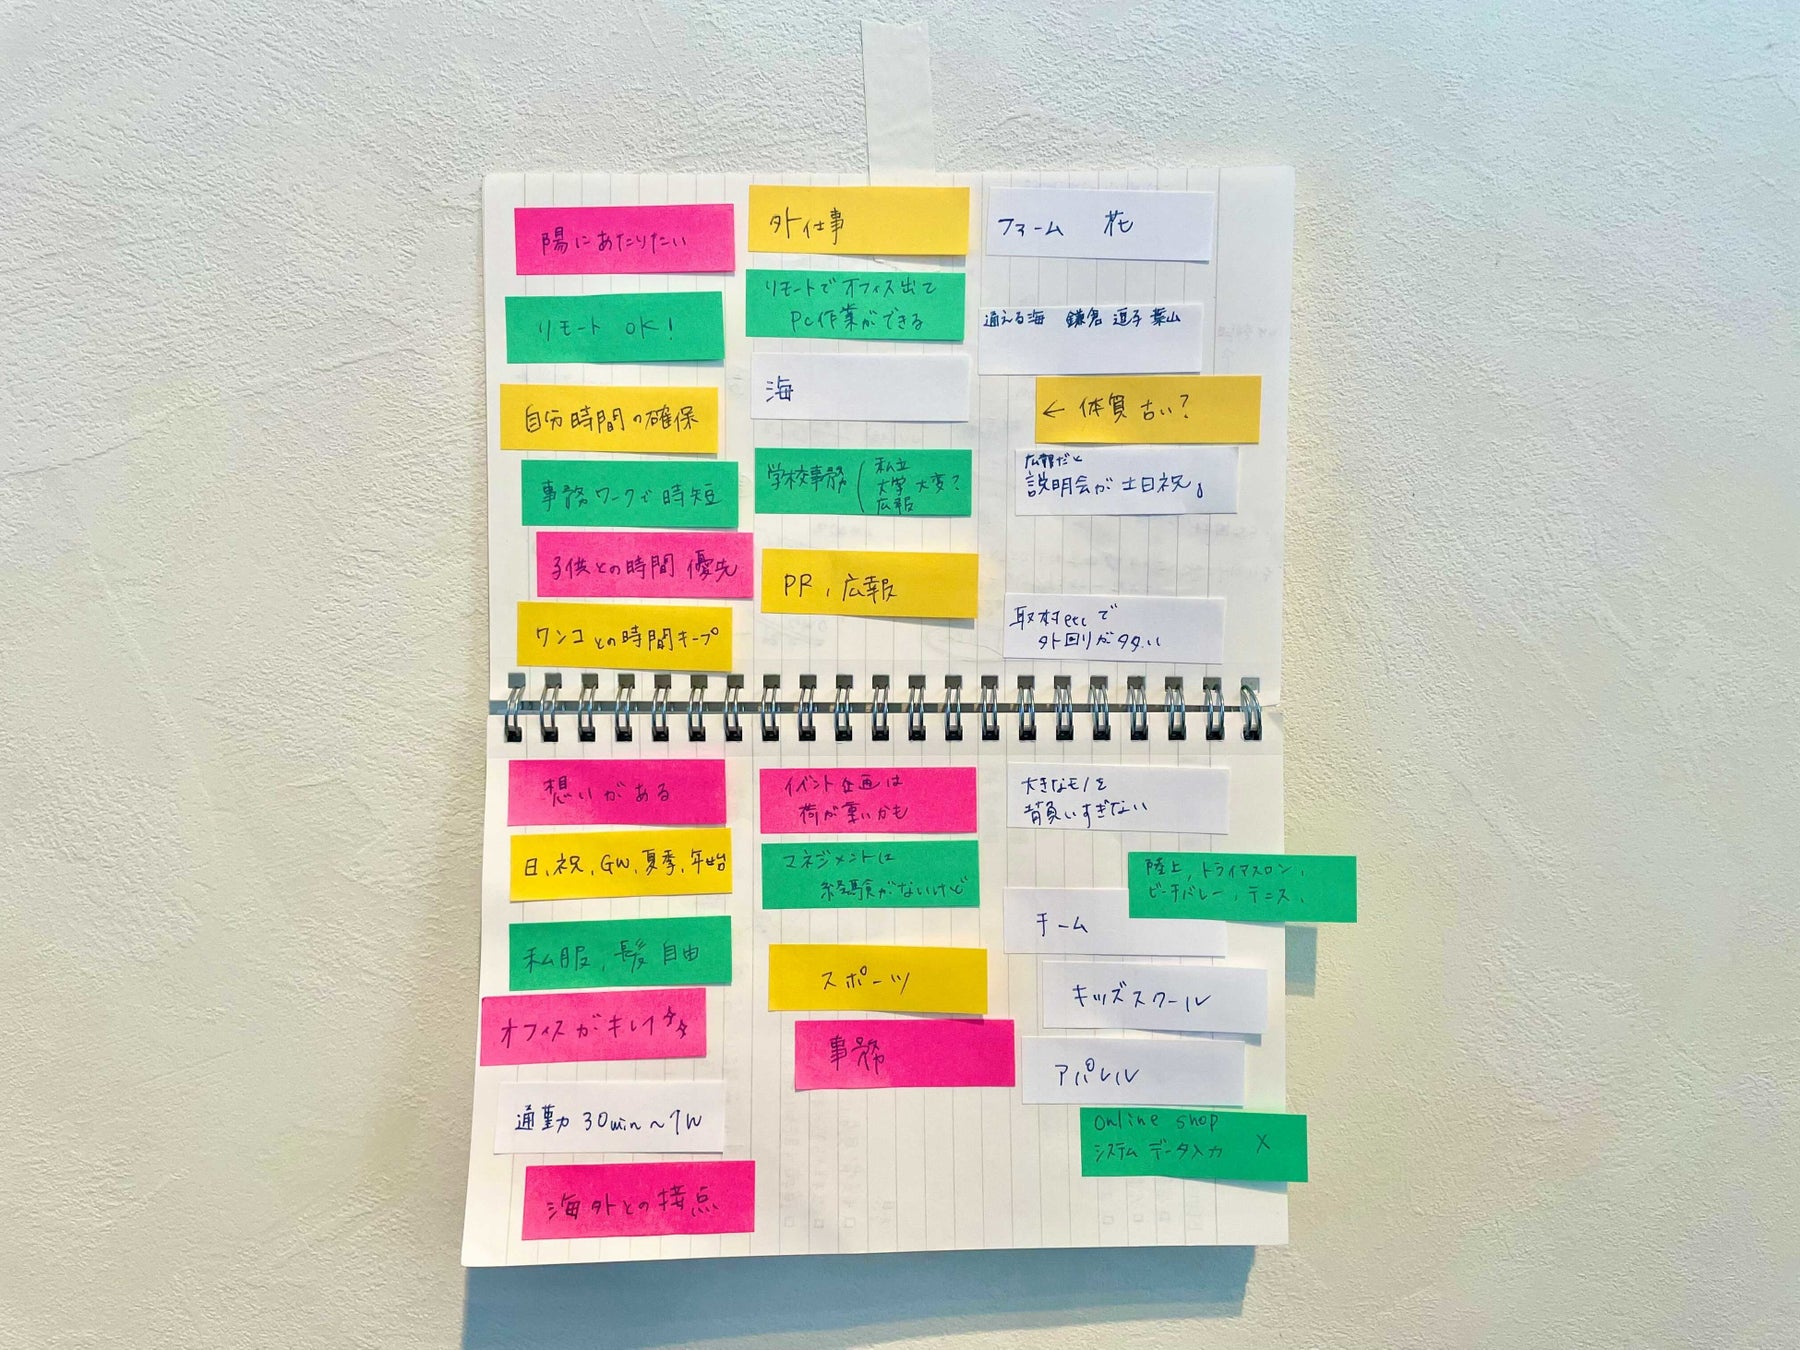 陽にあたりたい
リモート OK!
自分時間の確保
事務ワークで時短
子供との時間 優先
ワンコとの時間キープ
外仕事
リモートでオフィス出て
PC作業ができる
海
学校事務
私立
大学 大変?
広報
PR, 広報
ファーム 花
通える海 鎌倉 逗子 葉山
← 体質 古い?
広報だと
説明会が土日祝。
取材etcで
外回りが多い
想いがある
日, 祝, GW, 夏季, 年始
私服, 髪 自由
オフィスがキレイ
通勤 30min〜1H
海外との接点
イベント企画は
荷が重いかも
マネジメントは
経験がないけど
スポーツ
事務
大きなモノを
背負いすぎない
陸上, トライアスロン,
ビーチバレー, テニス,
チーム
キッズスクール
アパレル
Online shop
システム データ入力 ×